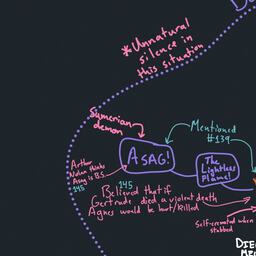 *Unnatural
silence in
this situation
Sumerian
demon
Mentioned
#139
ASAG!
The
Lightless
Flame!
Arthur
Nolan thinks
Asag is B.S.
145
145
Believed that if
Gertrude died a violent death
Agnes would be hurt/killed
Self-cremated when
stabbed